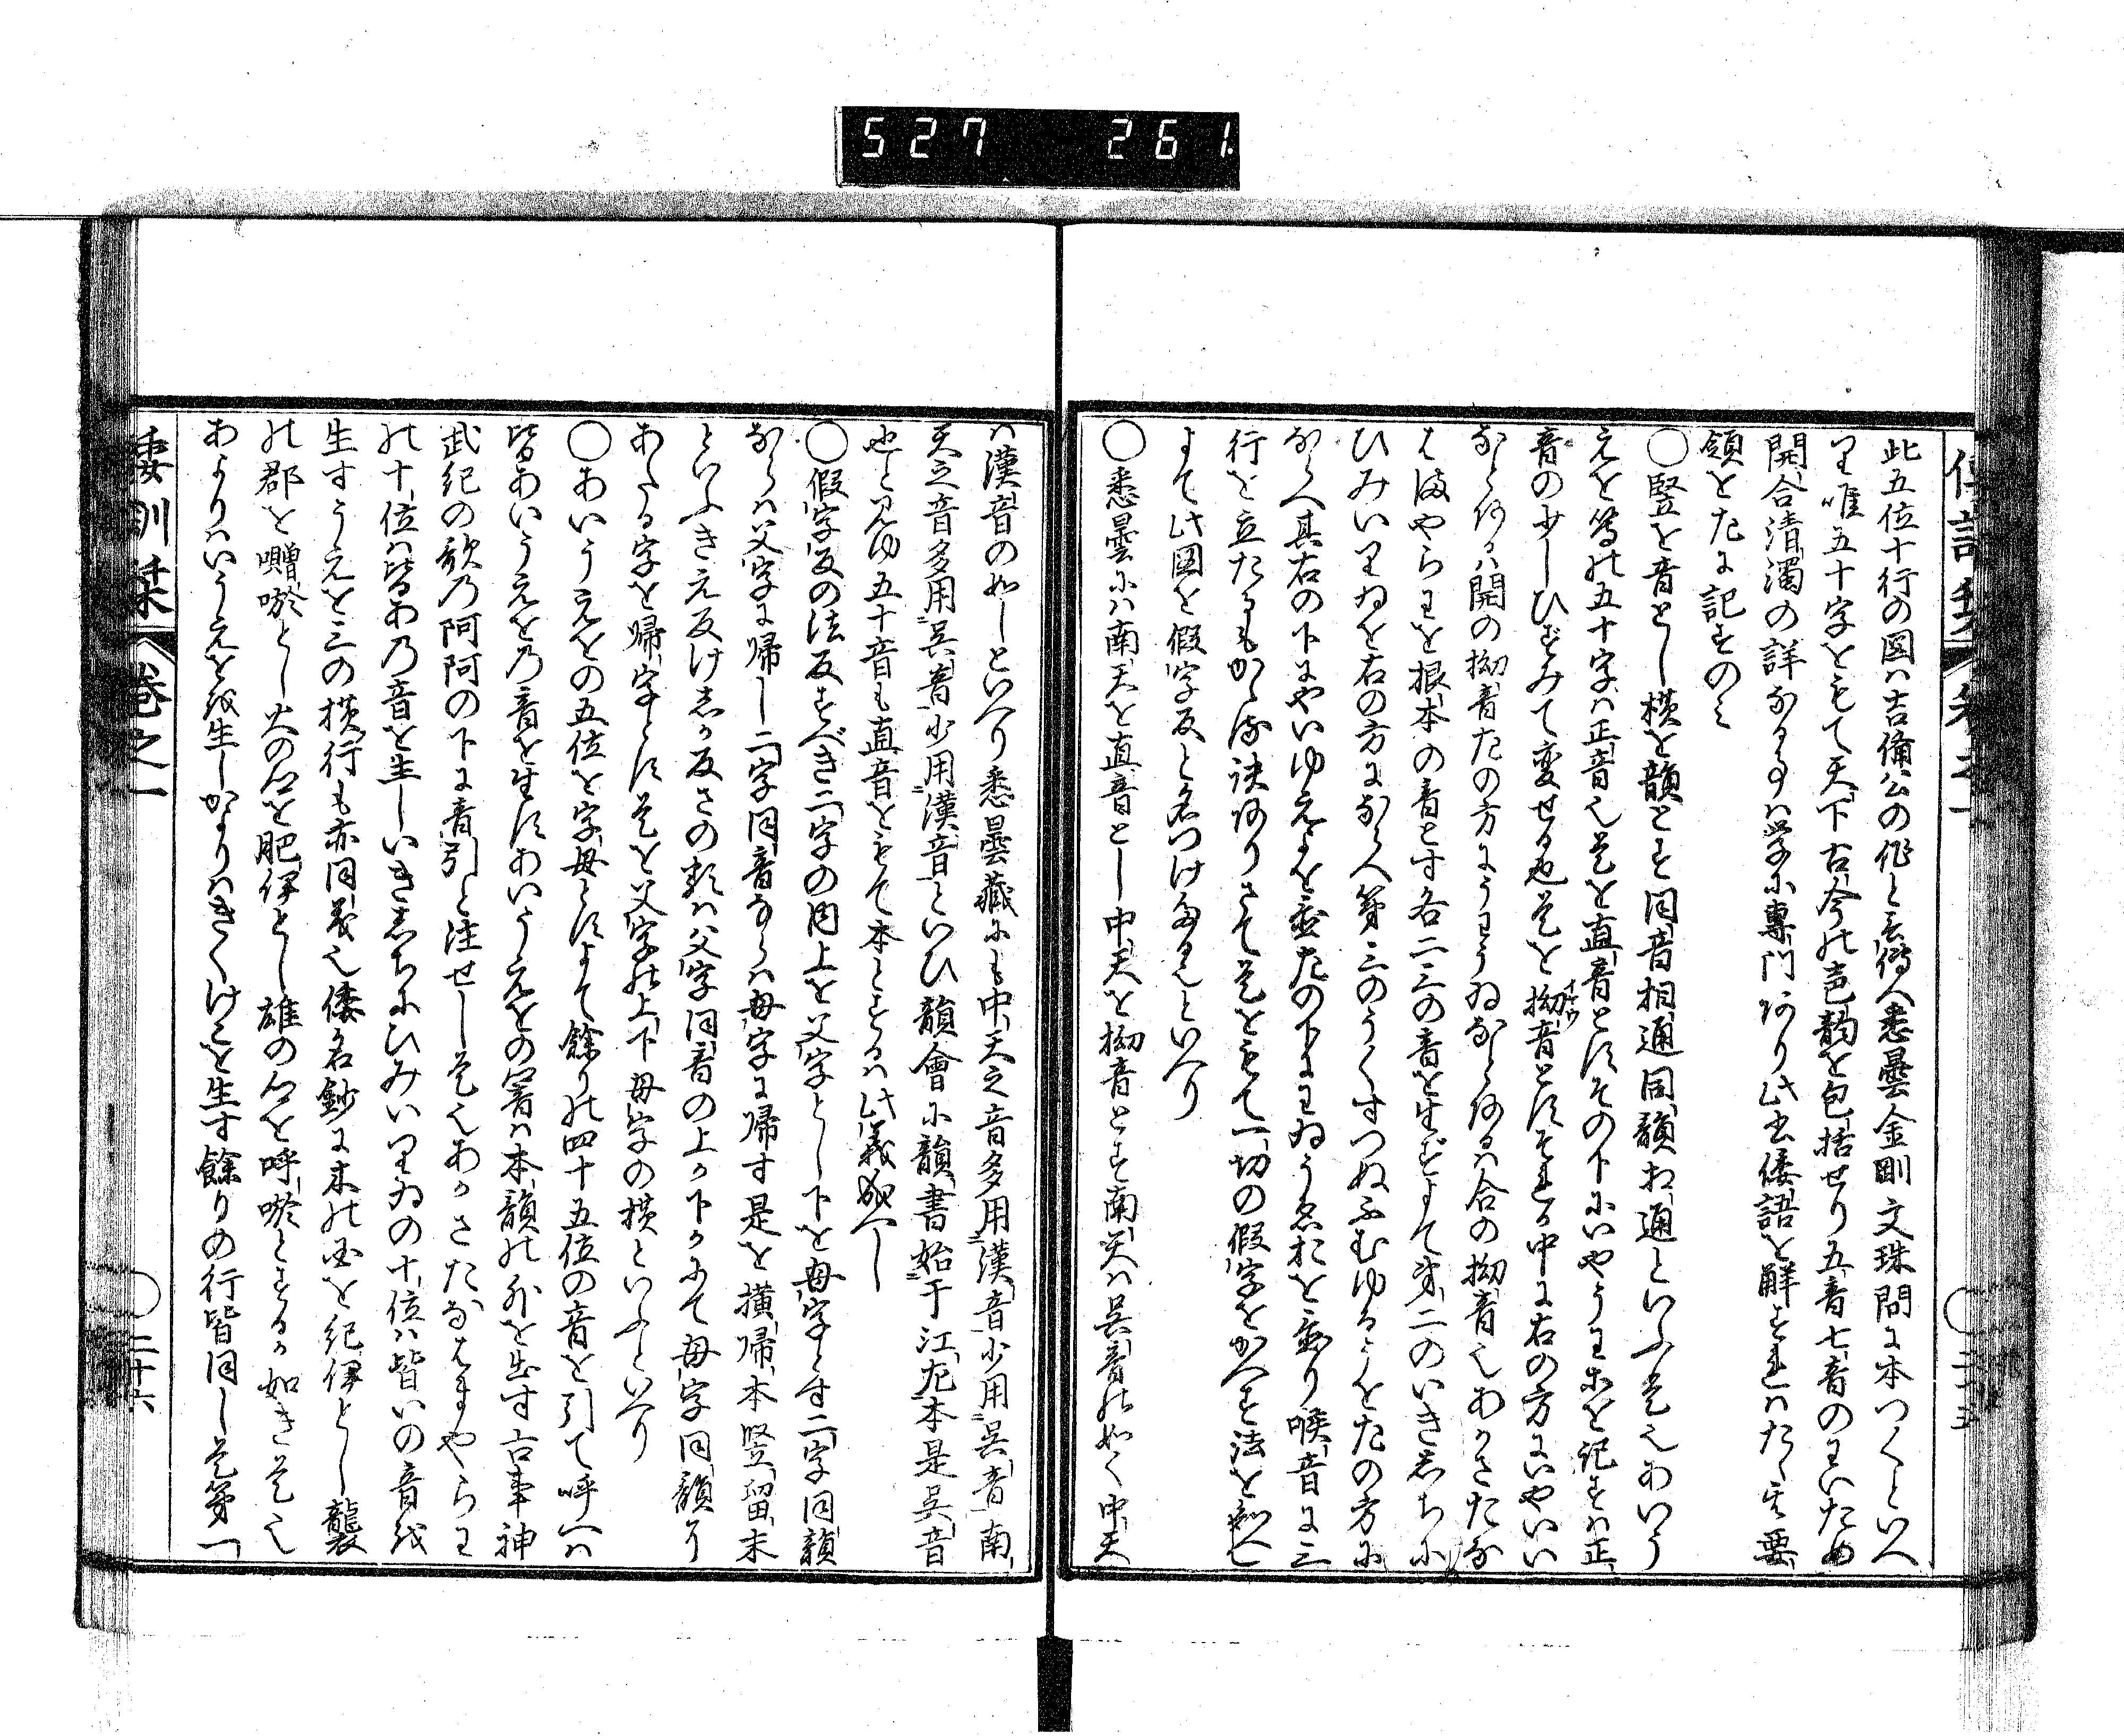 527 261
此五位十行の図ハ吉備公の作と云傳へ悉曇金剛文珠問に本つくといへ
り唯五十字をもて天下古今の声韵を包括せり五音七音のわいため
開合清濁の詳なる事ハ学に専門あり此書倭語を解すれハたゝ其要
領をたに記すのミ
◯竪を音とし横を韻とす同音相通同韻相通といふ是也あいう
えを等の五十字ハ正音也是を直音とすその下にいやうわ等を記すハ正
音の少しひずみて変せる也是を拗音とすそれか中に右の方にいやいい
なとあるハ開の拗音左の方にうわうゐなとあるハ合の拗音也あかさたな
はまやらわを根本の音とす各二三の音を生ずよて第二のいきしちに
ひみいりゐを右の方にならへ第三のうくすつぬふむゆるうを左の方に
ならへ其右の下にやいゆえよを並左の下にわゐうゑおを並り喉音に三
行を立たるもかゝる訣ありさて是をもて一切の假字をかへす法を教へ
よて此図を假字反と名つけたるといへり
◯悉曇にハ南天を直音とし中天を拗音とす南天ハ呉音の如く中天
ハ漢音の如しといへり悉曇蔵にも中天之音多用漢音少用呉音南
天之音多用呉音少用漢音といひ韻會に韻書始于江左本是呉音
也と見ゆ五十音も直音をもて本とするハ此義成へし
◯假字反の法反すべき二字の内上を父字とし下を母字とす二字同韻
ならハ父字に帰し二字同音ならハ母字に帰す是を横帰本竪留末
といふきえ反けしか反さの類ハ父字同音の上か下かにて母字同韻に
あたる字を帰字とす是を父字の上下母字の横といふといへり
◯あいうえをの五位を字母とすよて餘りの四十五位の音を引て呼へハ
皆あいうえをの音を生すあいうえをの響ハ本韻の外を出す古事神
武紀の歌乃阿阿の下に音引と注せし是也あかさたなはまやらわ
の十位ハ皆あ乃音を生しいきしちにひみいりゐの十位ハ皆いの音を
生すうえを三の横行も亦同義也倭名鈔に木の国を紀伊とし襲
の郡を囎唹とし火の国を肥伊とし雄の国を呼唹とするか如き是也
あよりハいうえをを生しかよりハきくけこを生す餘りの行皆同し是第一
倭訓栞 巻之一
二十六